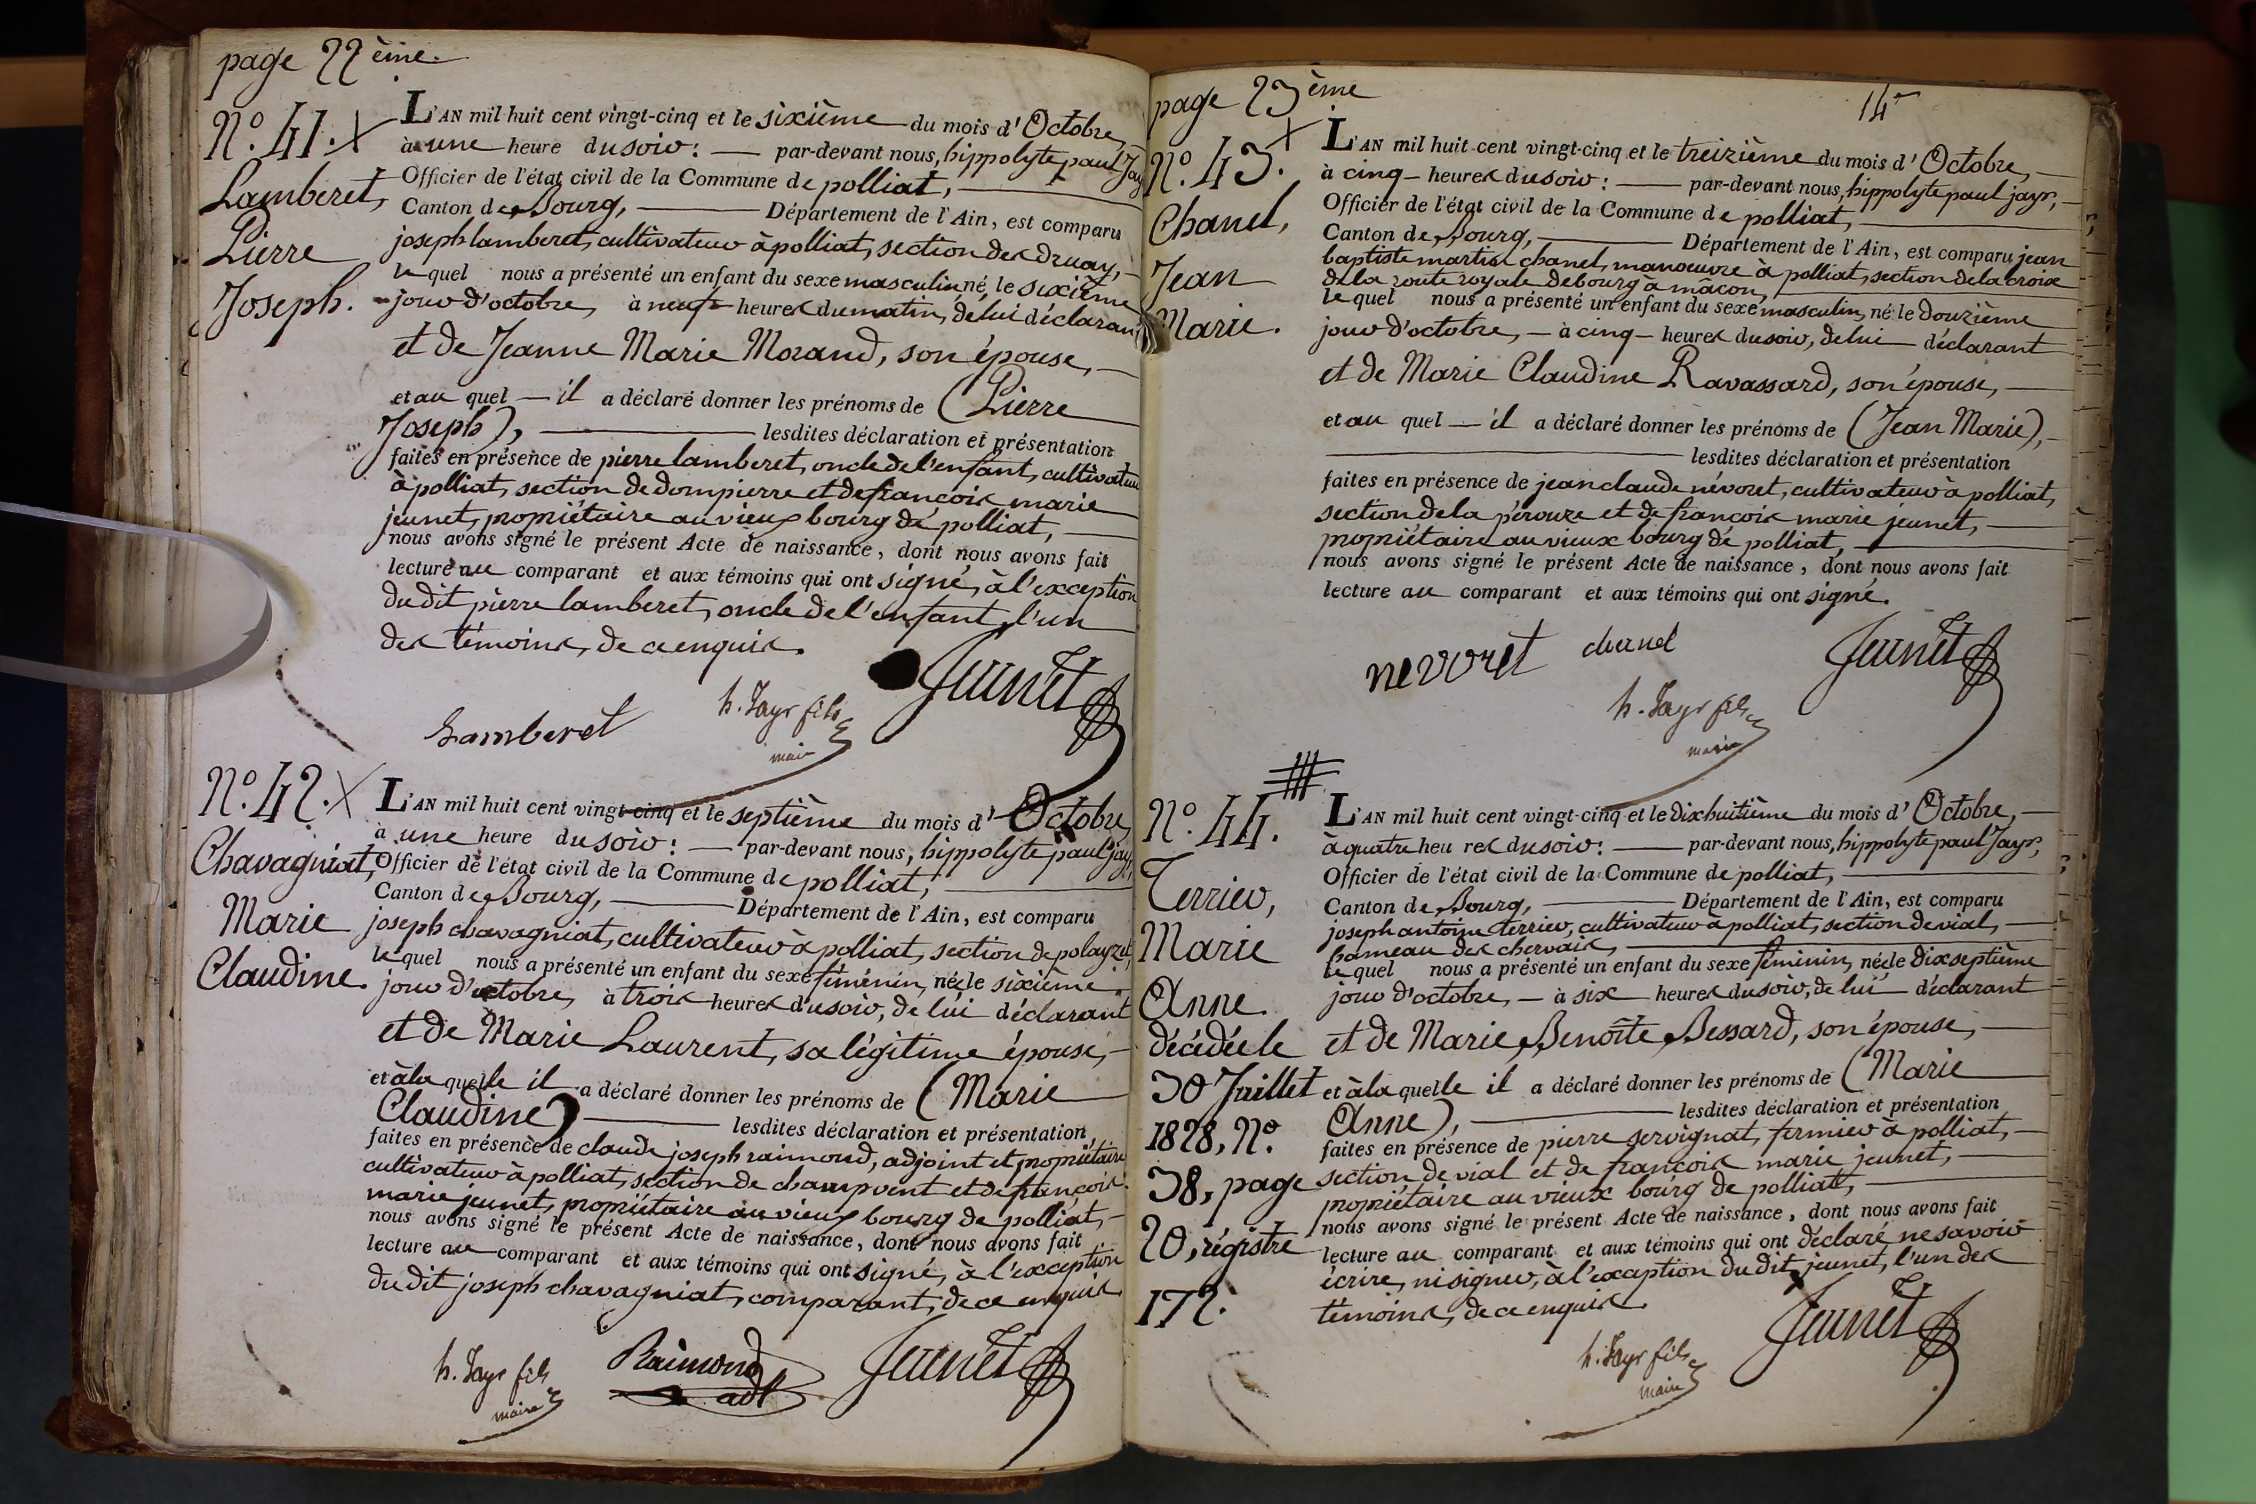 page 22ème.
N.º 41. X
Lamberet,
Pierre
Joseph.
L'AN mil huit cent vingt-cinq et le sixième du mois d'Octobre,
à une heure du soir : par-devant nous, hippolyte paul Jayr
Officier de l'état civil de la Commune de polliat,
Canton de Bourg, Département de l'Ain, est comparu
joseph lamberet, cultivateur à polliat, section des druay,
le quel nous a présenté un enfant du sexe masculin né, le sixième
jour d'octobre, à neuf heures du matin, de lui déclarant
et de Jeanne Marie Morand, son épouse,
et au quel il a déclaré donner les prénoms de (Pierre
Joseph), lesdites déclaration et présentation
faites en présence de pierre lamberet, oncle de l'enfant, cultivateur
à polliat, section de dompierre et de françois marie
jeunet, propriétaire au vieux bourg de polliat,
nous avons signé le présent Acte de naissance, dont nous avons fait
lecture au comparant et aux témoins qui ont signé, à l'exception
du dit pierre lamberet, oncle de l'enfant, l'un
des témoins, de ce enquis.
Lamberet
h. Jayr fils
maire
Jeunet
N.º 42. X
Chavagniat,
Marie
Claudine.
L'AN mil huit cent vingt-cinq et le septième du mois d'Octobre,
à une heure du soir : par-devant nous, hippolyte paul jayr,
Officier de l'état civil de la Commune de polliat,
Canton de Bourg, Département de l'Ain, est comparu
joseph chavagniat, cultivateur à polliat, section de polayzé,
le quel nous a présenté un enfant du sexe féminin, née le sixième
jour d'octobre, à trois heures du soir, de lui déclarant
et de Marie Laurent, sa légitime épouse,
et à la quelle il a déclaré donner les prénoms de (Marie
Claudine) lesdites déclaration et présentation,
faites en présence de claude joseph raimond, adjoint et propriétaire
cultivateur à polliat, section de champvent et de françois
marie jeunet, propriétaire au vieux bourg de polliat,
nous avons signé le présent Acte de naissance, dont nous avons fait
lecture au comparant et aux témoins qui ont signé, à l'exception
du dit joseph chavagniat, comparant, de ce enquis
h. Jayr fils
maire
Raimond
adt
Jeunet
page 23ème
14
N.º 43. X
Chanel,
Jean
Marie.
L'AN mil huit cent vingt-cinq et le treizième du mois d'Octobre,
à cinq heures du soir : par-devant nous, hippolyte paul jayr,
Officier de l'état civil de la Commune de polliat,
Canton de Bourg, Département de l'Ain, est comparu jean
baptiste martin chanel, manœuvre à polliat, section de la croix
de la route royale de bourg à mâcon,
le quel nous a présenté un enfant du sexe masculin, né le douzième
jour d'octobre, à cinq heures du soir, de lui déclarant
et de Marie Claudine Ravassard, son épouse,
et au quel il a déclaré donner les prénoms de (Jean Marie),
lesdites déclaration et présentation
faites en présence de jean claude névoret, cultivateur à polliat,
section de la pérouze et de françois marie jeunet,
propriétaire au vieux bourg de polliat,
nous avons signé le présent Acte de naissance, dont nous avons fait
lecture au comparant et aux témoins qui ont signé.
nevoret
chanel
Jeunet
h. Jayr fils
maire
N.º 44.
Terrier,
Marie
Anne.
décédée le
30 Juillet
1828, N.º
38, page
20, régistre
172.
L'AN mil huit cent vingt-cinq et le dixhuitième du mois d'Octobre,
à quatre heures du soir : par-devant nous, hippolyte paul Jayr,
Officier de l'état civil de la Commune de polliat,
Canton de Bourg, Département de l'Ain, est comparu
joseph antoine terrier, cultivateur à polliat, section de vial,
hameau des chervais,
le quel nous a présenté un enfant du sexe féminin, née le dixseptième
jour d'octobre, à six heures du soir, de lui déclarant
et de Marie Benoîte Bessard, son épouse,
et à la quelle il a déclaré donner les prénoms de (Marie
Anne), lesdites déclaration et présentation
faites en présence de pierre servignat, fermier à polliat,
section de vial et de françois marie jeunet,
propriétaire au vieux bourg de polliat,
nous avons signé le présent Acte de naissance, dont nous avons fait
lecture au comparant et aux témoins qui ont déclaré ne savoir
écrire, ni signer, à l'exception du dit jeunet, l'un des
témoins, de ce enquis.
h. Jayr fils
maire
Jeunet